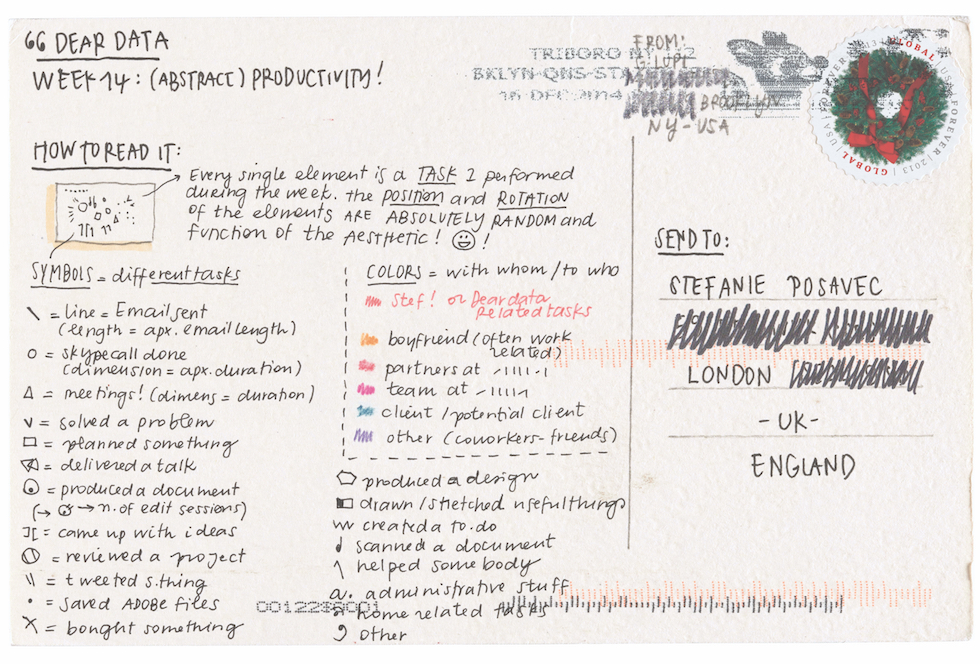 66 DEAR DATA
WEEK 14: (ABSTRACT) PRODUCTIVITY!
TRIBORO NY
BKLYN-QNS-STA
16 DEC 2014
FROM:
G. LUPI
BROOKLYN
NY - USA
GLOBAL USA FOREVER 2013
GLOBAL USA FOREVER 2013
HOW TO READ IT:
Every single element is a TASK I performed
during the week. the POSITION and ROTATION
of the elements ARE ABSOLUTELY RANDOM and
function of the AESTHETIC! !
SYMBOLS = different tasks
\ = line = Email sent
(length = apx. email length)
O = skype call done
(dimension = apx. duration)
Δ = meetings! (dimens = duration)
v = solved a problem
□ = planned something
= delivered a talk
= produced a document
(→ → n. of edit sessions)
][ = came up with ideas
= reviewed a project
\\ = tweeted s.thing
• = saved ADOBE files
= bought something
COLORS = with whom / to who
Stef! or Dear data
related tasks
boyfriend (often work
related)
partners at
team at
client / potential client
other (coworkers-friends)
produced a design
drawn / sketched useful things
created a to.do
scanned a document
helped some body
a. administrative stuff
home related tasks
other
SEND TO:
STEFANIE POSAVEC
LONDON
- UK -
ENGLAND